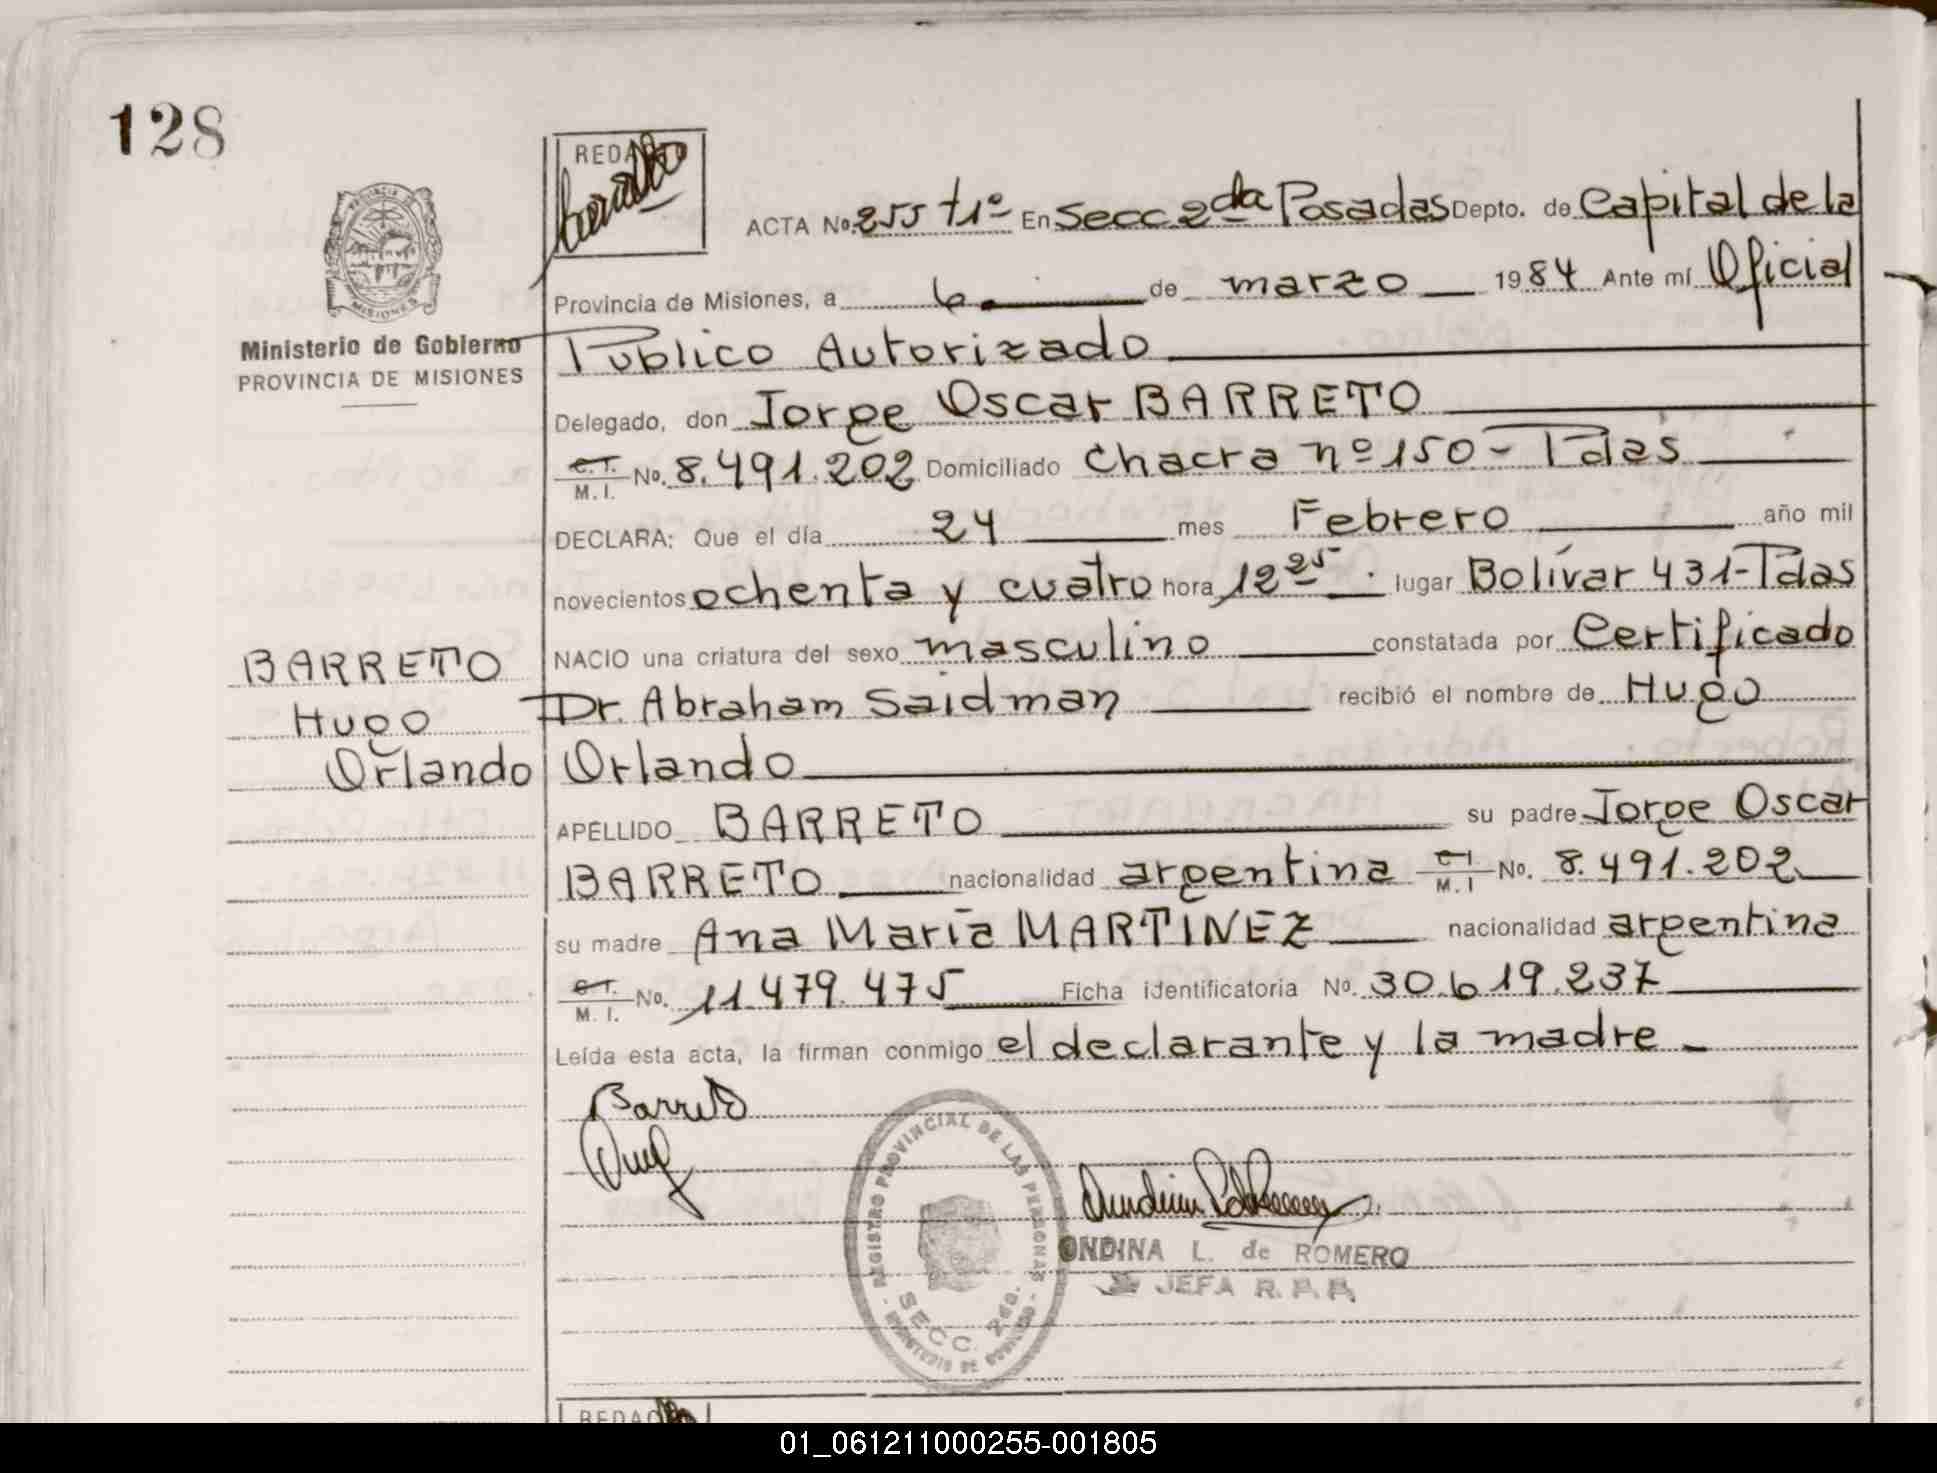 128
REDACTO
ACTA No. 255 t1º En Secc 2da Posadas Depto. de Capital de la
PROVINCIA DE
MISIONES
Provincia de Misiones, a 6 de marzo 1984 Ante mí Oficial
Ministerio de Gobierno
PROVINCIA DE MISIONES
Público Autorizado
Delegado, don Jorge Oscar BARRETO
C.I. M.I. No. 8.491.202 Domiciliado Chacra nº 150 - Pdas
DECLARA: Que el día 24 mes Febrero año mil
novecientos ochenta y cuatro hora 12 25 . lugar Bolívar 431-Pdas
NACIO una criatura del sexo masculino constatada por Certificado
Dr. Abraham Saidman recibió el nombre de Hugo
Orlando
BARRETO
Hugo
Orlando
APELLIDO BARRETO su padre Jorge Oscar
BARRETO nacionalidad argentina C.I M.I No. 8.491.202
su madre Ana María MARTINEZ nacionalidad argentina
C.I. M.I. No. 11.479.475 Ficha identificatoria No. 30.619.237
Leída esta acta, la firman conmigo el declarante y la madre
Barreto
REGISTRO PROVINCIAL DE LAS PERSONAS
SECC. 2da.
MINISTERIO DE GOBIERNO
ONDINA L. de ROMERO
JEFA R.P.P.
REDACTO
01_061211000255-001805